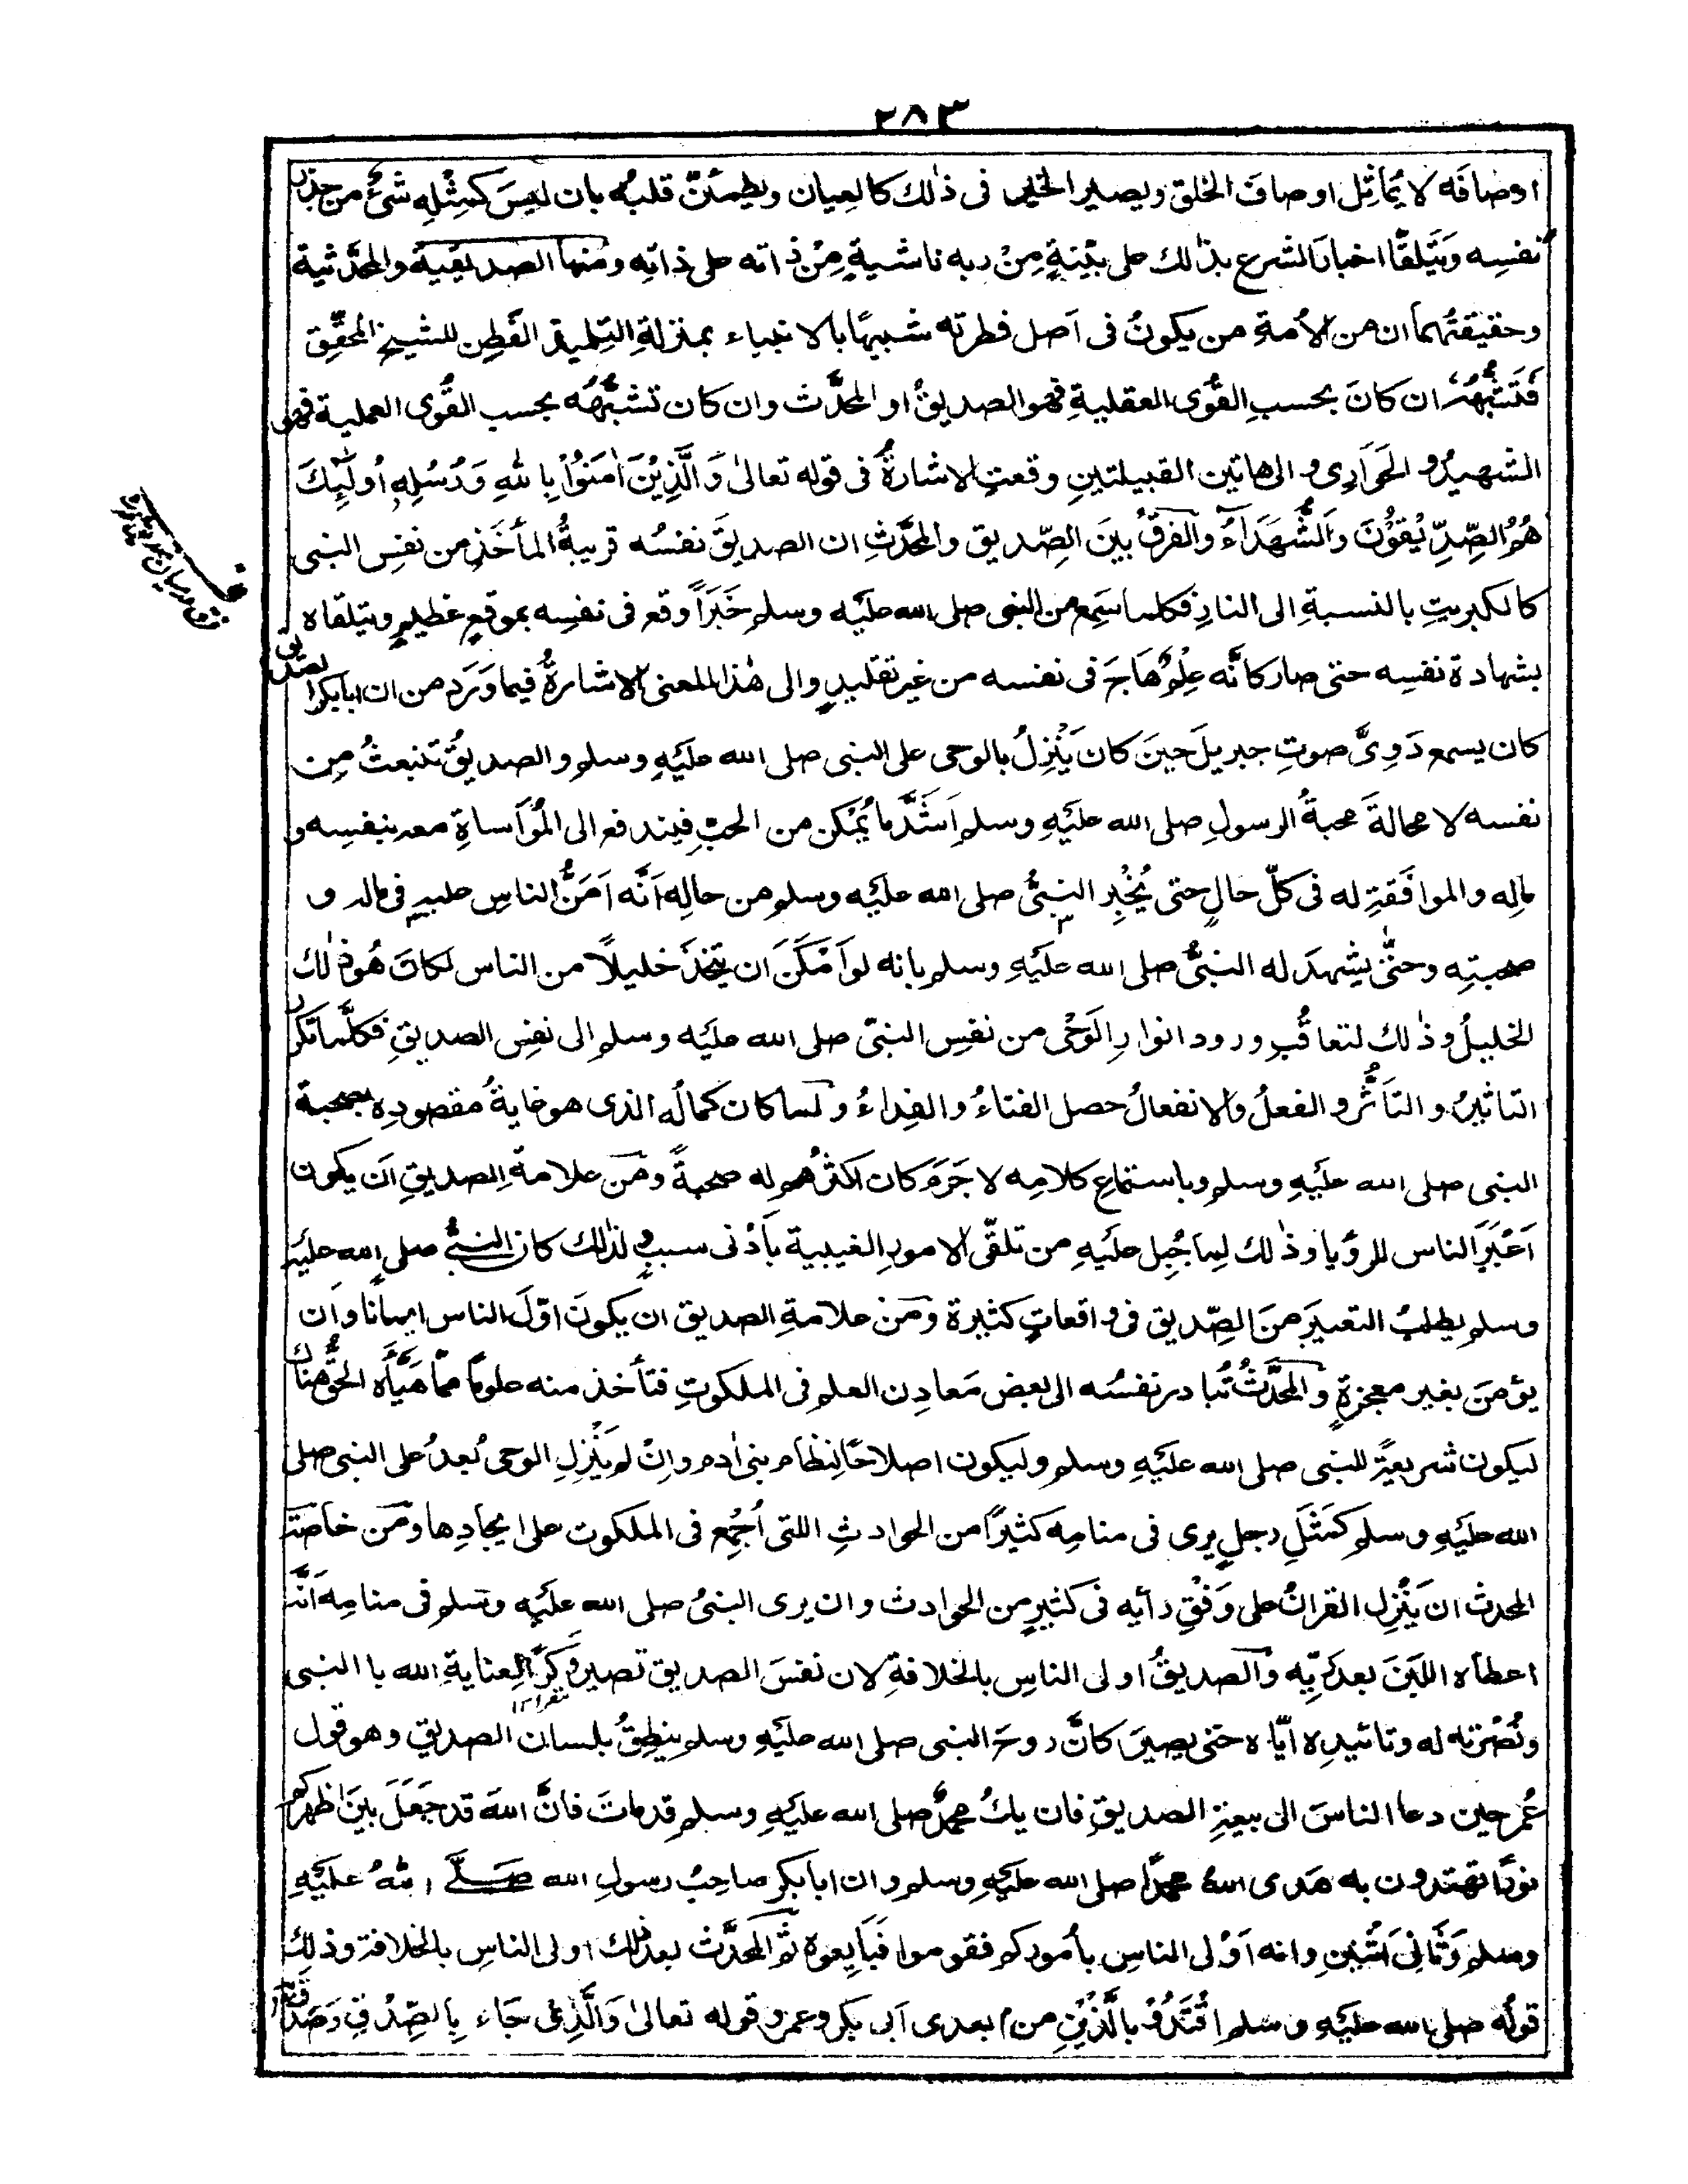 ٢٨٣
اوصافَه لا يُماثِل اوصافَ الخلق ويصير الخبر فى ذٰلك كالعِيان ويطمئنّ قلبُه بان ليسَ كمثْلِه شىءٌ من جذر
نفسِه وَيَتَلَقّا اخبارَ الشرع بذٰلك على بيّنةٍ مِنْ ربه ناشيةٍ مِنْ ذاته على ذاتِه ومنها الصديقيةُ والمحدَّثية
وحقيقتُهما ان من الأمةِ من يكونُ فى اَصل فطرته شبيهًا بالانبياء بمنزلةِ التِلميذِ الفَطِن للشيخ المحقِّق
فَتَشَبُّهُه ان كانَ بحسبِ القُوَى العقليةِ فهو الصديقُ او المحدَّث وان كان تشبُّهُه بحسب القُوى العملية فهو
الشهيدُ و الحَوَارِى و الى هاتين القبيلتينِ وقعتِ الاشارةُ فى قوله تعالىٰ وَ الَّذِيْنَ اٰمَنُوْا بِاللهِ وَرُسُلِهٖ اُولٰٓئِكَ
هُمُ الصِّدِّيْقُوْنَ وَالشُّهَدَاءُ والفرقُ بينَ الصِّديق والمحدَّثِ ان الصديقَ نفسُه قريبةُ المأخَذِ من نفسِ النبى
كالكبريتِ بالنسبةِ الى النارِ فكلما سَمِع من النبى صلى الله عليَه وسلم خَبَرًا وقع فى نفسِه بموقعٍ عظيمٍ ويتلقاه
بشهادة نفسِه حتى صار كانَّه عِلْمٌ هَاجَ فى نفسه من غير تقليدٍ والى هٰذا المعنى الاشارةُ فيما وَرَد من ان ابابكر الصديق
كان يسمع دَوِىَّ صوتِ جبريلَ حينَ كان يَنْزِلُ بالوحى على النبى صلى الله عليَهِ وسلم والصديقُ تنبعثُ مِن
نفسه لا محالةَ محبةُ الرسولِ صلى الله عليَهِ وسلم اَشَدَّ ما يُمْكن من الحبّ فيندفع الى المُوَاساةِ معه بنفسِه و
مالِه والموافَقةِ له فى كلّ حالٍ حتى يُخْبِر النبىُّ صلى الله عليَه وسلم من حالِه اَنَّه اَمَنُّ الناسِ عليه فى ماله و
صحبتِه وحتّٰى يشهدَ له النبىُّ صلى الله عليَهِ وسلم بانه لو اَمْكَنَ ان يتخذَ خليلًا من الناس لكانَ هُو ذٰلك
الخليلُ وذٰلك لتعاقُبِ ورود انوارِ الوَحْى من نفسِ النبىّ صلى الله عليَه وسلم الى نفسِ الصديقِ فكلَّما تكرر
التاثيرُ و التاَثُّر و الفعلُ والانفعالُ حصل الفناءُ والفِداءُ ولما كان كمالُه الذى هو غايةُ مقصودِه بصحبة
النبى صلى الله عليَهِ وسلم وباستماعِ كلامِه لا جَرَمَ كان اكثرُهم له صحبةً ومن علامةِ الصديقِ اَن يكون
اَعْبَرَ الناس للرؤيا وذٰلك لِما جُبِل عليَهِ من تلقّى الامورِ الغيبية بأدْنى سببٍ ولذٰلك كان النبىُّ صلى الله عليَهِ
وسلم يطلبُ التعبيرَ مِنَ الصِّديق فى واقعاتٍ كثيرة ومن علامةِ الصديق ان يكونَ اوّلَ الناس ايمانا واَن
يؤمنَ بغير معجزةٍ والمحدَّثُ تُبادر نفسُه الى بعض مَعادِن العلم فى الملكوتِ فتأخذ منه علومًا مما هَيَّأَه الحقُّ هناك
ليكون شريعةً للنبى صلى الله عليَهِ وسلم وليكون اصلاحًا لِنظام بنى اٰدم وانْ لم يَنْزِلِ الوحى بُعدُ على النبى صلى
الله عليَهِ وسلم كمَثَلِ رجلٍ يرى فى منامِه كثيرًا من الحوادثِ اللتى اُجْمِع فى الملكوت على ايجادِها ومن خاصّة
المحدث ان يَنْزِل القرانُ على وَفْقِ رأيه فى كثيرٍ من الحوادث وان يرى النبىُ صلى الله عليَه وسلم فى منامِه اَنَّه
اعطاه اللبَنَ بعد رِيِّه والصديقُ اولى الناسِ بالخلافةِ لان نفسَ الصديق تصير وَكْرًا لعنايةِ الله با النبى
ونُصْرتِه له وتائيدِه ايّاه حتى يصيرَ كانَّ روحَ النبى صلى الله عليَهِ وسلم ينطِقُ بلسان الصديقِ وهو قول
عُمر حين دعا الناسَ الى بيعةِ الصديقِ فان يكُ محمدٌ صلى الله عليَهِ وسلم قد ماتَ فانَّ اللهَ قد جَعَلَ بينَ اظهركم
نورًا تهتدون به هَدى اللهُ محمدًا صلى الله عليَهِ وسلم وان ابابكر صاحِبُ رسولِ الله صَلَّے اللهُ عليَهِ
وسلم وَثَانِىَ اثْنينِ وانه اَوْلى الناسِ بأموركم فقوموا فَبَايِعوه ثُمَّ المحدَّث بعد ذٰلك اولى الناسِ بالخلافة وذٰلك
قولُه صلى الله عليَهِ وسلم اقْتَدُوْا بالَّذَيْنِ من بعدى اَبى بكر وعمر وقوله تعالىٰ وَالَّذِىْ جَاء بِالصِّدْقِ وَصَدَّقَ